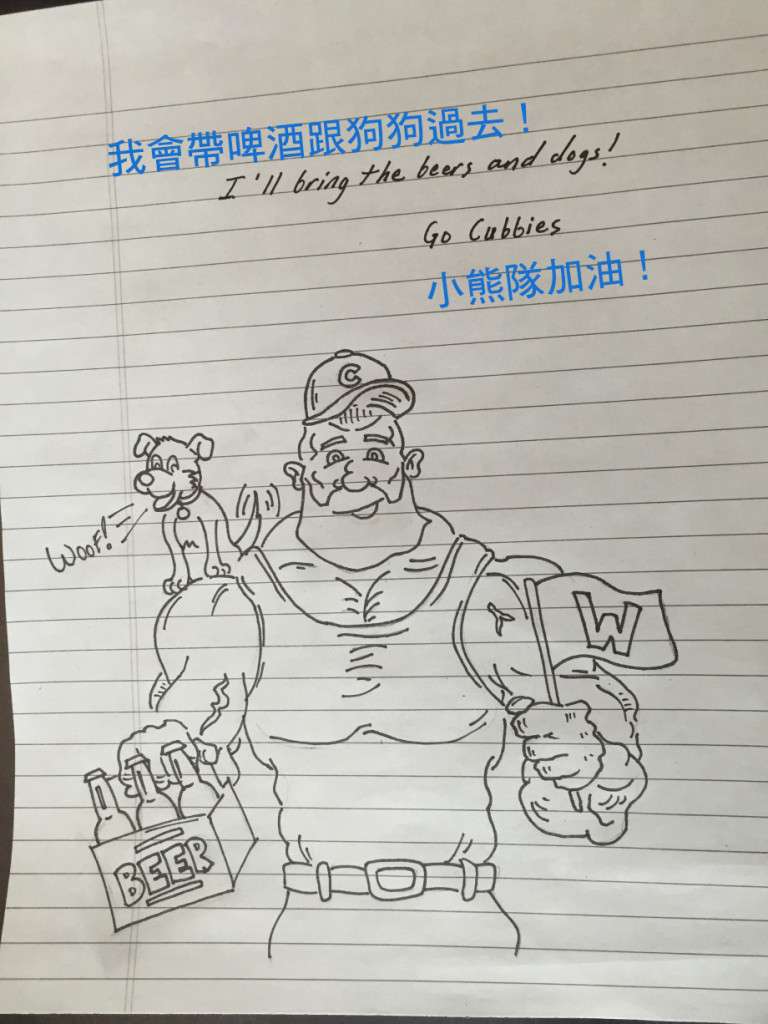 我會帶啤酒跟狗狗過去！
I'll bring the beers and dogs!
Go Cubbies
小熊隊加油！
C
WOOF!
W
BEER